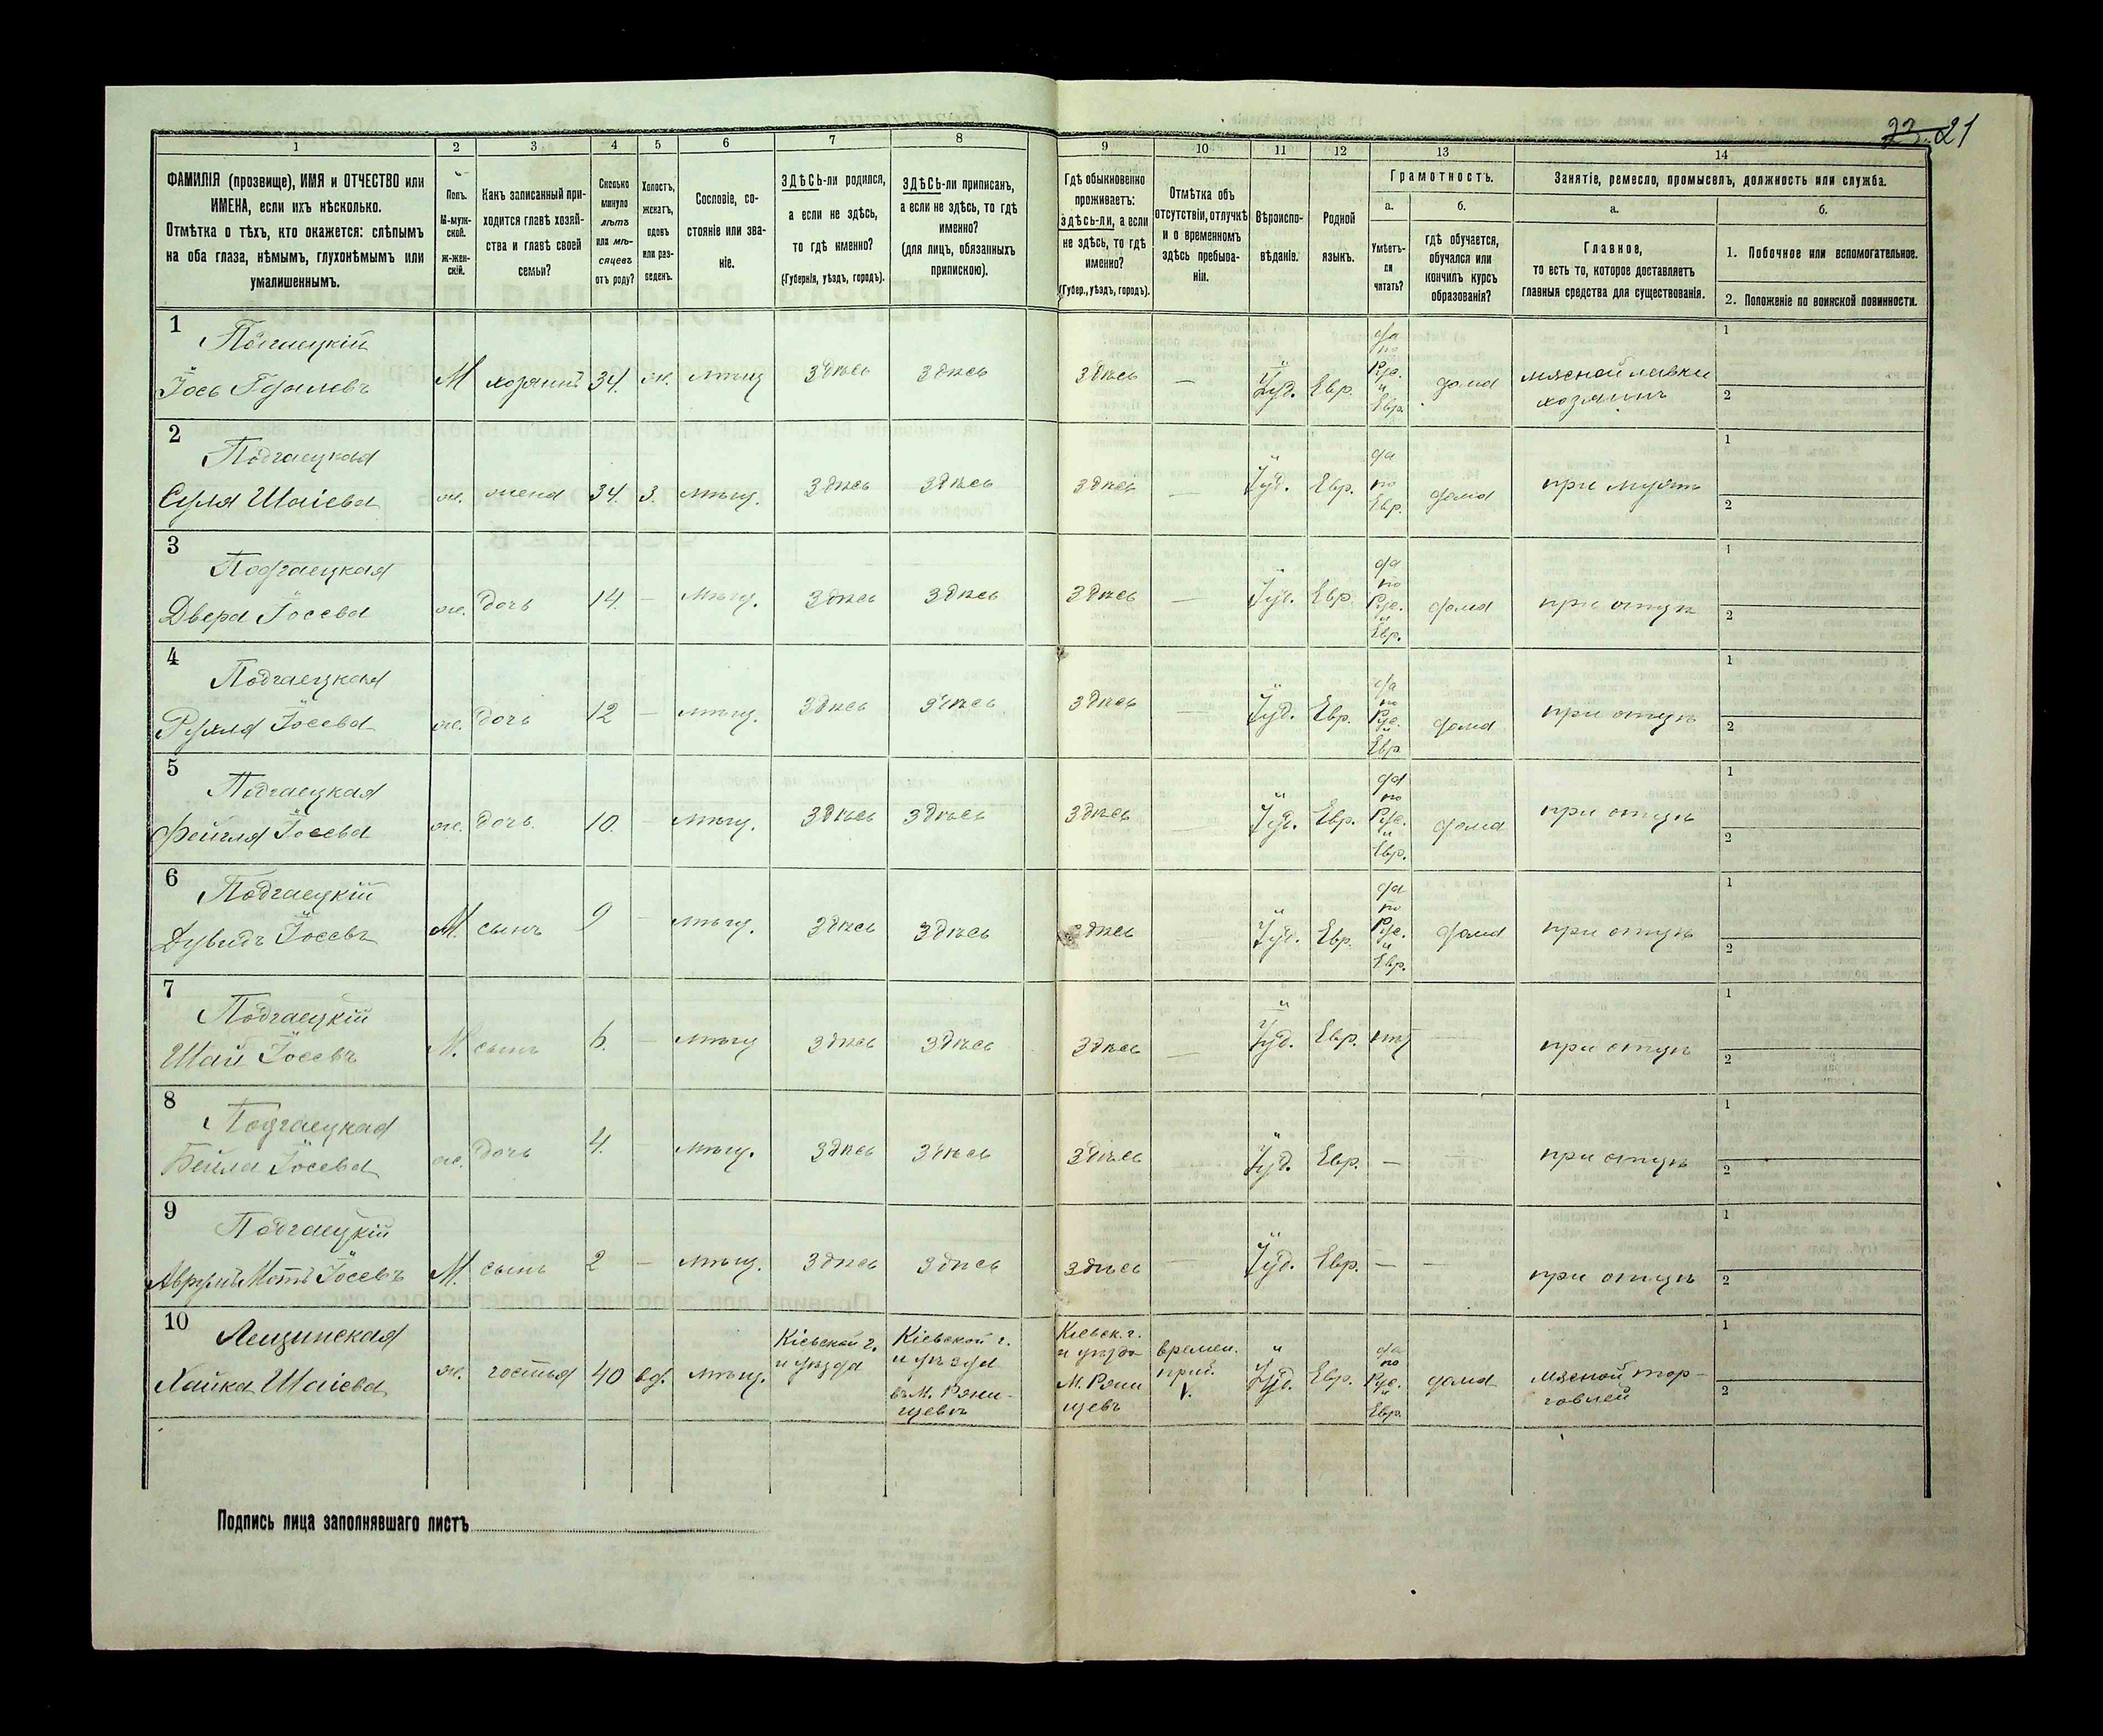 23. 21
1 2 3 4 5 6 7 8 9 10 11 12 13 14
ФАМИЛІЯ (прозвище), ИМЯ и ОТЧЕСТВО или
ИМЕНА, если ихъ нѣсколько.
Отмѣтка о тѣхъ, кто окажется: слѣпымъ
на оба глаза, нѣмымъ, глухонѣмымъ или
умалишеннымъ.
Полъ.
М-муж-
ской.
ж-жен-
скій.
Какъ записанный при-
ходится главѣ хозяй-
ства и главѣ своей
семьи?
Сколько
минуло
лѣтъ
или мѣ-
сяцевъ
отъ роду?
Холостъ,
женатъ,
вдовъ
или раз-
веденъ.
Сословіе, со-
стояніе или зва-
ніе.
ЗДѢСЬ-ли родился,
а если не здѣсь,
то гдѣ именно?
(Губернія, уѣздъ, городъ).
ЗДѢСЬ-ли приписанъ,
а если не здѣсь, то гдѣ
именно?
(для лицъ, обязанныхъ
припискою).
Гдѣ обыкновенно
проживаетъ:
здѣсь-ли, а если
не здѣсь, то гдѣ
именно?
(Губер., уѣздъ, городъ).
Отмѣтка объ
отсутствіи, отлучкѣ
и о временномъ
здѣсь пребыва-
ніи.
Вѣроиспо-
вѣданіе.
Родной
языкъ.
Грамотность.
а.
Умѣетъ-
ли
читать?
б.
гдѣ обучается,
обучался или
кончилъ курсъ
образованія?
Занятіе, ремесло, промыселъ, должность или служба.
а.
Главное,
то есть то, которое доставляетъ
главныя средства для существованія.
б.
1. Побочное или вспомогательное.
2. Положеніе по воинской повинности.
1
Подгаецкій
Іось
М хозяинъ 34. ж. мѣщ здѣсь здѣсь здѣсь — Іуд. Евр.
да
по
Рус.
и
Евр.
дома
мясной лавки
хозяинъ
1
2
2
Подгаецкая
Сура Шаіева
ж. жена 34. з. мѣщ. здѣсь здѣсь здѣсь — Іуд. Евр.
да
по
Евр.
дома
при мужѣ
1
2
3
Подгаецкая
Двера Іосева
ж. дочь 14. — мѣщ. здѣсь здѣсь здѣсь — Іуд. Евр.
да
по
Рус.
и
Евр.
дома
при отцѣ
1
2
4
Подгаецкая
Іосева
ж. дочь 12 — мѣщ. здѣсь здѣсь здѣсь — Іуд. Евр.
да
по
Рус.
и
Евр
дома
при отцѣ
1
2
5
Подгаецкая
Фейгля Іосева
ж. дочь. 10. — мѣщ. здѣсь здѣсь здѣсь — Іуд. Евр.
да
по
Рус.
и
Евр.
дома
при отцѣ
1
2
6
Подгаецкій
Дувидъ Іосевъ
М. сынъ 9 — мѣщ. здѣсь здѣсь здѣсь — Іуд. Евр.
да
по
Рус.
и
Евр.
дома
при отцѣ
1
2
7
Подгаецкій
Шай Іосевъ
М. сынъ 6. — мѣщ здѣсь здѣсь здѣсь — Іуд. Евр. — при отцѣ
1
2
8
Подгаецкая
Бейла Іосева
ж. дочь 4. — мѣщ. здѣсь здѣсь здѣсь Іуд. Евр. — — при отцѣ
1
2
9
Подгаецкій
Аврумъ Мотъ Іосевъ
М. сынъ 2 — мѣщ. здѣсь здѣсь здѣсь — Іуд. Евр. — — при отцѣ
1
2
10
Лещинская
Хайка Шаіева
ж. гостья 40 вд. мѣщ.
Кіевской г.
и уѣзда
Кіевской г.
и уѣзда
въ М. Ржи-
щевѣ
Кіевск. г.
и уѣзда
М. Ржи
щевъ
времен.
приб.
V.
Іуд. Евр.
да
по
Рус.
и
Евр.
дома
мясной тор-
говлей
1
2
Подпись лица заполнявшаго листъ